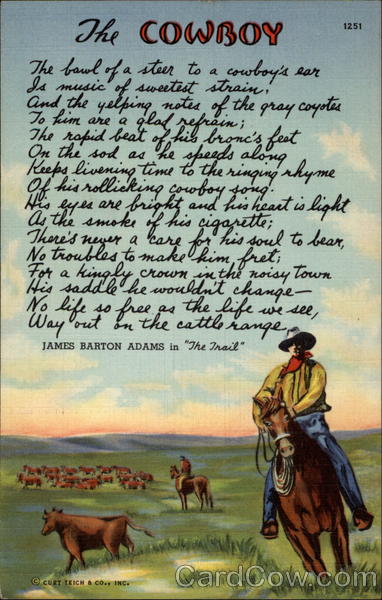 The COWBOY
1251
The bawl of a steer to a cowboy's ear
Is music of sweetest strain;
And the yelping notes of the gray coyotes
To him are a glad refrain;
The rapid beat of his bronc's feet
On the sod as he speeds along
Keeps livening time to the ringing rhyme
Of his rollicking cowboy song.
His eyes are bright and his heart is light
As the smoke of his cigarette;
There's never a care for his soul to bear,
No troubles to make him fret;
For a kingly crown in the noisy town
His saddle he wouldn't change—
No life so free as the life we see,
Way out on the cattle range.
JAMES BARTON ADAMS in "The Trail"
© CURT TEICH & CO., INC.
CardCow.com